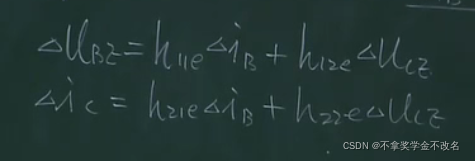 △U_BE = h_11e △i_B + h_12e △U_CE
△i_C = h_21e △i_B + h_22e △U_CE
CSDN @不拿奖学金不改名